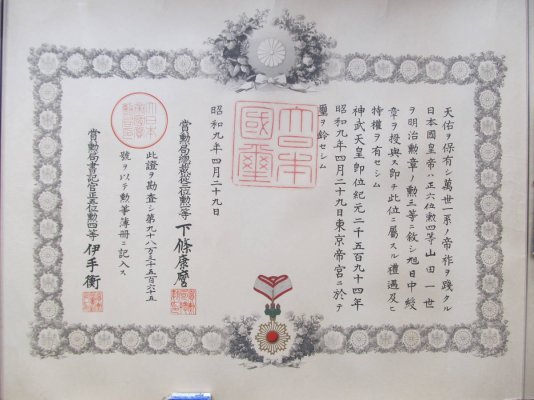 天佑ヲ保有シ萬世一系ノ帝祚ヲ踐タル
日本國皇帝ハ正六位勲四等山田一世
ヲ明治勲章ノ勲三等ニ敘シ旭日中綬
章ヲ授與ス即チ此位ニ屬スル禮遇及ヒ
特權ヲ有セシム
神武天皇即位紀元二千五百九十四年
昭和九年四月二十九日東京帝宮ニ於テ
璽ヲ鈐セシム
大日本
國璽
昭和九年四月二十九日
賞勲局總裁從三位勲二等下條康麿
此證ヲ勘査シ第九十八万三千五百六十五
號ヲ以テ勲等簿册ニ記入ス
賞勲局書記官正五位勲四等伊手衡